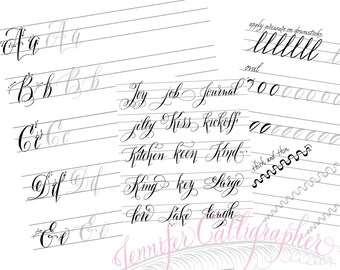 Aa Aa
Bb Bb
Cc
Dd
Ee
Joy job Journal
jelly Kiss kickoff
Kitchen keen Kind
King key Large
love Lake laugh
apply pressure on downstroke
oval
thick and thin
Jennifer Calligrapher